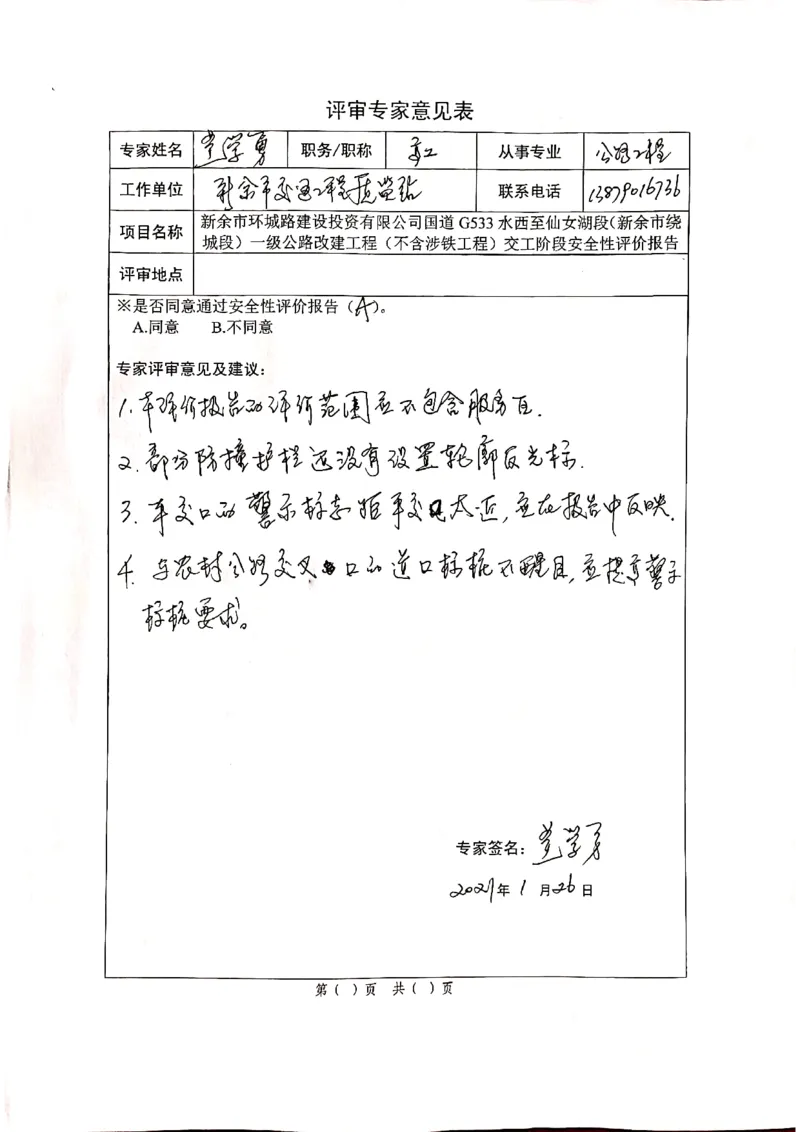 评审专家意见表
专家姓名 学勇 职务/职称 高工 从事专业 公路工程
工作单位 新余市交通工程质监站 联系电话 13879016736
项目名称 新余市环城路建设投资有限公司国道 G533 水西至仙女湖段（新余市绕
城段）一级公路改建工程（不含涉铁工程）交工阶段安全性评价报告
评审地点
※是否同意通过安全性评价报告（A）。
A.同意 B.不同意
专家评审意见及建议：
1. 本评价报告的评价范围应不包含服务区.
2. 部分防撞护栏还没有设置轮廓反光标.
3. 平交口的警示标志距平交口太近，应在报告中反映.
4. 与农村公路交叉口的道口标桩不醒目，应提高警示
标桩要求。
专家签名： 学勇
2021年 1 月 26 日
第（ ）页 共（ ）页